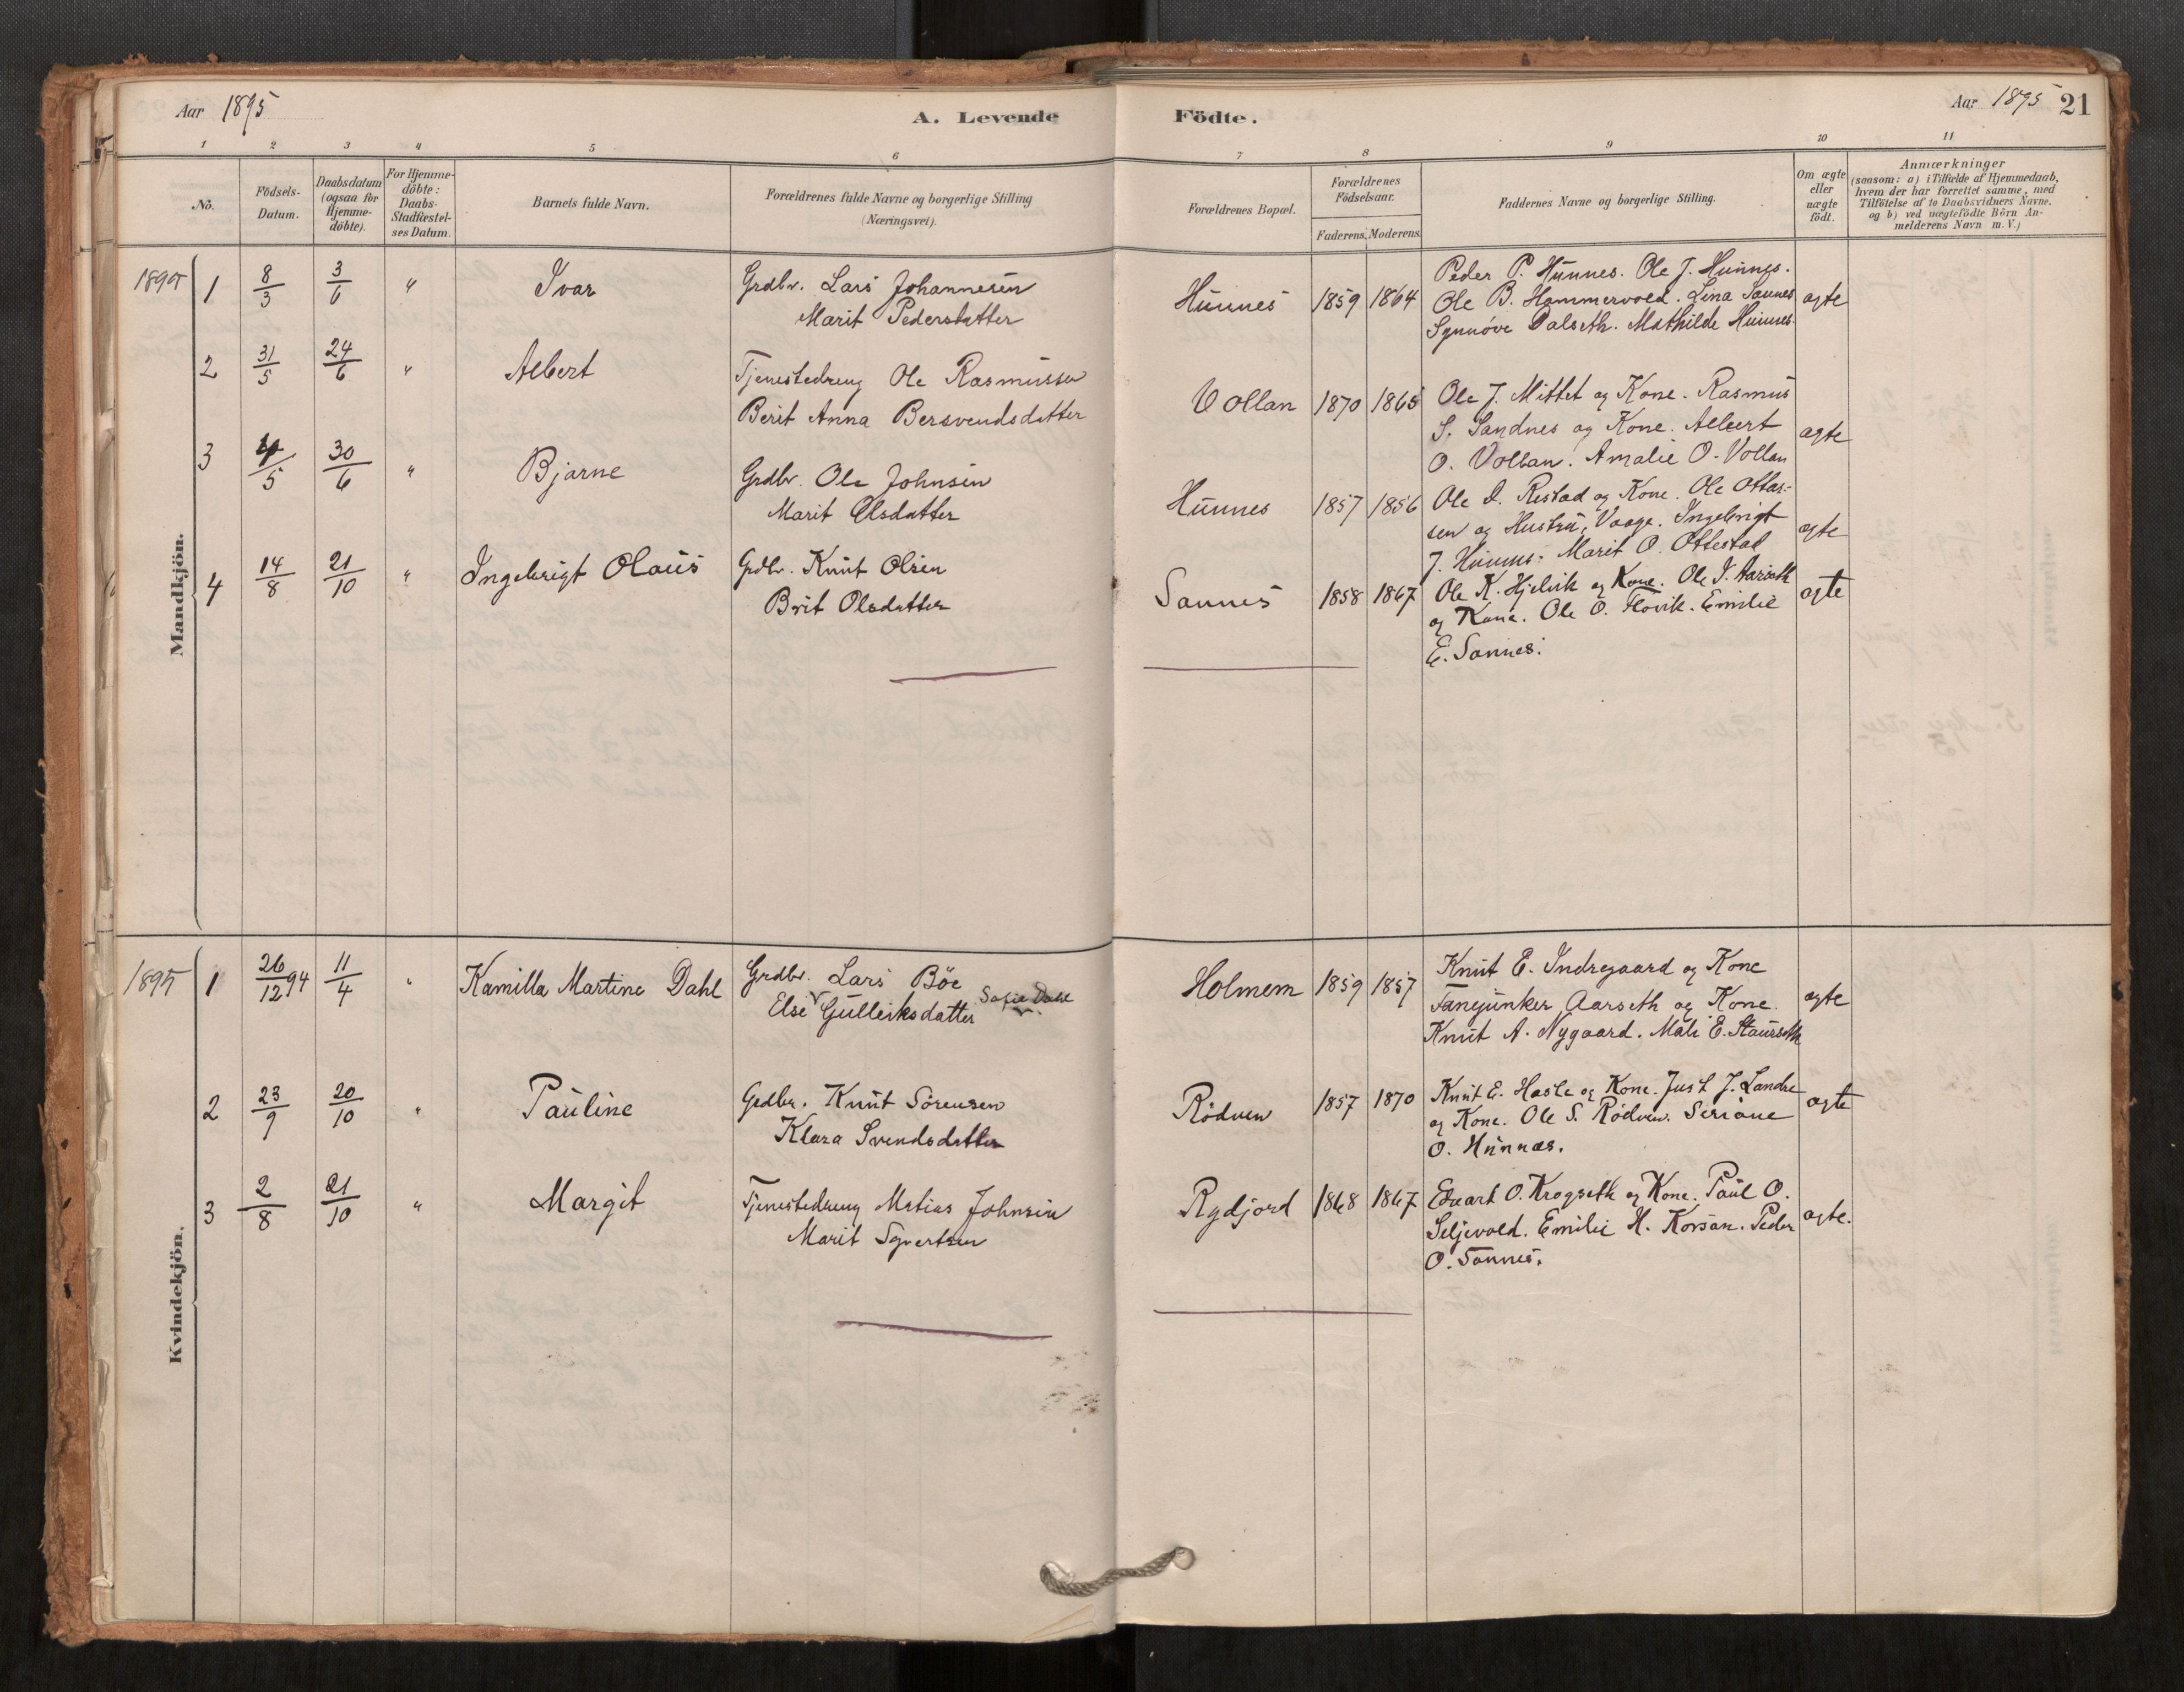 Aar 1895
A. Levende Födte.
Aar 1895 21
1 2 3 4 5 6 7 8 9 10 11
No.
Födsels-
Datum.
Daabsdatum
(ogsaa for
Hjemme-
döbte).
For Hjemme-
döbte:
Daabs-
Stadfæstel-
ses Datum.
Barnets fulde Navn.
Forældrenes fulde Navne og borgerlige Stilling
(Næringsvei).
Forældrenes Bopæl.
Forældrenes
Födselsaar.
Faderens. Moderens.
Faddernes Navne og borgerlige Stilling.
Om ægte
eller
uægte
födt.
Anmærkninger
(saasom: a) i Tilfælde af Hjemmedaab,
hvem der har forrettet samme, med
Tilföielse af to Daabsvidners Navne.
og b) ved uægtefödte Börn An-
melderens Navn m.V.)
Mandkjön.
1895 1 8/3 3/6 " Ivar
Grdbr. Lars Johannesen
Marit Pedersdatter
Hunnes 1859 1864
Peder P. Hunnes. Ole J. Hunnes.
Ole B. Hammervold. Lina Sannes
Synnöve Dalseth. Mathilde Hunnes.
ægte
2 31/5 24/6 " Albert
Tjenestedreng Ole Rasmussen
Berit Anna Bersvendsdatter
Vollan 1870 1865
Ole J. Mittet og Kone. Rasmus
S. Sandnes og Kone. Albert
O. Vollan. Amalie O. Vollan
ægte
3 4/5 30/6 " Bjarne
Grdbr. Ole Johnsen
Marit Olsdatter
Hunnes 1857 1856
Ole D. Restad og Kone. Ole Ottar-
sen og Hustru, Vaage. Ingebrigt
J. Hunnes. Marit O. Ottestad
ægte
4 14/8 21/10 " Ingebrigt Olaus
Grdbr. Knut Olsen
Brit Olsdatter
Sannes 1858 1867
Ole K. Hjelvik og Kone. Ole I. Aarseth
og Kone. Ole O. Flovik. Emilie
E. Sannes.
ægte
Kvindekjön.
1895 1 26/12 94 11/4 " Kamilla Martine Dahl
Grdbr. Lars Böe
Else Gulleiksdatter Sofie Dahl
Holmem 1859 1857
Knut E. Indregaard og Kone
Fanejunker Aarseth og Kone.
Knut A. Nygaard. Mali E. Staurseth
ægte
2 23/9 20/10 " Pauline
Grdbr. Knut Sörensen
Klara Svendsdatter
Rödven 1857 1870
Knut E. Hasle og Kone. Just J. Landre
og Kone. Ole S. Rödven. Seriane
O. Hunnæs.
ægte
3 2/8 21/10 " Margit
Tjenestedreng Matias Johnsen
Marit Syvertsen
Rydjord 1868 1867
Edvart O. Krogseth og Kone. Paul O.
Seljevold. Emilie H. Korsan. Peder
O. Sannes.
ægte.